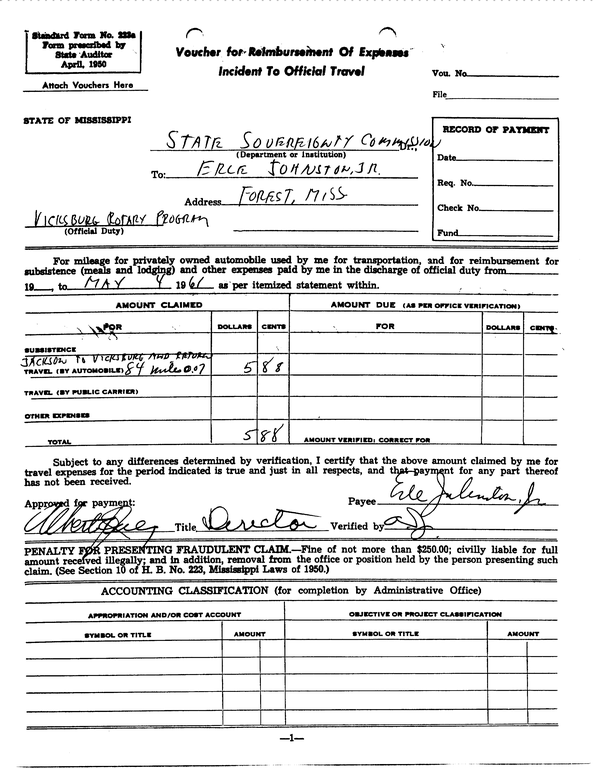 Standard Form No. 223a
Form prescribed by
State Auditor
April, 1950
Attach Vouchers Here
Voucher for Reimbursement Of Expenses
Incident To Official Travel
Vou. No.
File
STATE OF MISSISSIPPI
RECORD OF PAYMENT
Date
Req. No.
Check No.
Fund
STATE SOVEREIGNTY COMMISSION
(Department or institution)
To: ERLE JOHNSTON, JR.
Address FOREST, MISS
VICKSBURG ROTARY PROGRAM
(Official Duty)
For mileage for privately owned automobile used by me for transportation, and for reimbursement for
subsistence (meals and lodging) and other expenses paid by me in the discharge of official duty from
19 , to MAY 4 1961 as per itemized statement within.
AMOUNT CLAIMED AMOUNT DUE (AS PER OFFICE VERIFICATION)
FOR DOLLARS CENTS FOR DOLLARS CENTS
SUBSISTENCE
JACKSON TO VICKSBURG AND RETURN
TRAVEL (BY AUTOMOBILE) 84 miles @.07 5 88
TRAVEL (BY PUBLIC CARRIER)
OTHER EXPENSES
TOTAL 5 88 AMOUNT VERIFIED: CORRECT FOR
Subject to any differences determined by verification, I certify that the above amount claimed by me for
travel expenses for the period indicated is true and just in all respects, and that payment for any part thereof
has not been received.
Approved for payment: Payee Erle Johnston, Jr.
Title Director Verified by
PENALTY FOR PRESENTING FRAUDULENT CLAIM.—Fine of not more than $250.00; civilly liable for full
amount received illegally; and in addition, removal from the office or position held by the person presenting such
claim. (See Section 10 of H. B. No. 223, Mississippi Laws of 1950.)
ACCOUNTING CLASSIFICATION (for completion by Administrative Office)
APPROPRIATION AND/OR COST ACCOUNT OBJECTIVE OR PROJECT CLASSIFICATION
SYMBOL OR TITLE AMOUNT SYMBOL OR TITLE AMOUNT
—1—